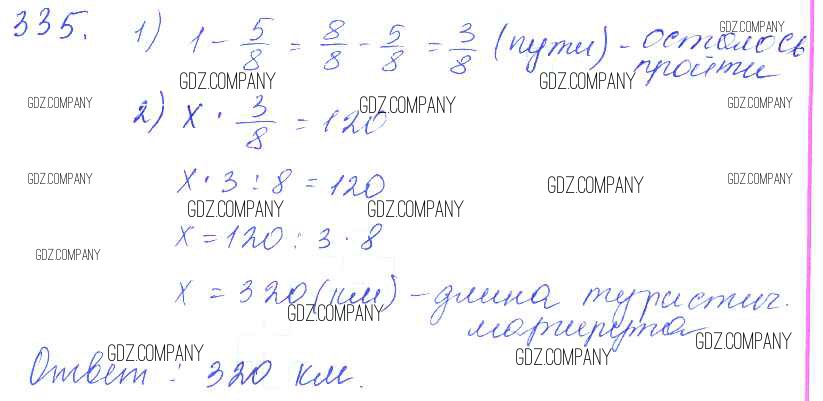 335. 1) 1 - 5/8 = 8/8 - 5/8 = 3/8 (пути) - осталось
пройти
2) x · 3/8 = 120
x · 3 : 8 = 120
x = 120 : 3 · 8
x = 320 (км) - длина туристич.
маршрута
Ответ : 320 км.
GDZ.COMPANY
GDZ.COMPANY GDZ.COMPANY
GDZ.COMPANY GDZ.COMPANY GDZ.COMPANY
GDZ.COMPANY GDZ.COMPANY GDZ.COMPANY
GDZ.COMPANY GDZ.COMPANY
GDZ.COMPANY
GDZ.COMPANY
GDZ.COMPANY GDZ.COMPANY GDZ.COMPANY